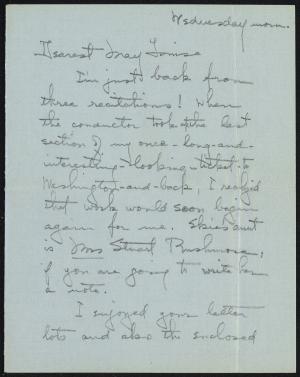 Wednesday morn.
Dearest May Louise
I'm just back from
three recitations! When
the conductor took the last
section of my once-long-and-
interesting-looking-ticket-to
Washington-and-back, I realized
that work would soon begin
again for me. Elsie's aunt
is Mrs Stuart Rushmore,
if you are going to write her
a note.
I enjoyed your letter
lots and also the enclosed